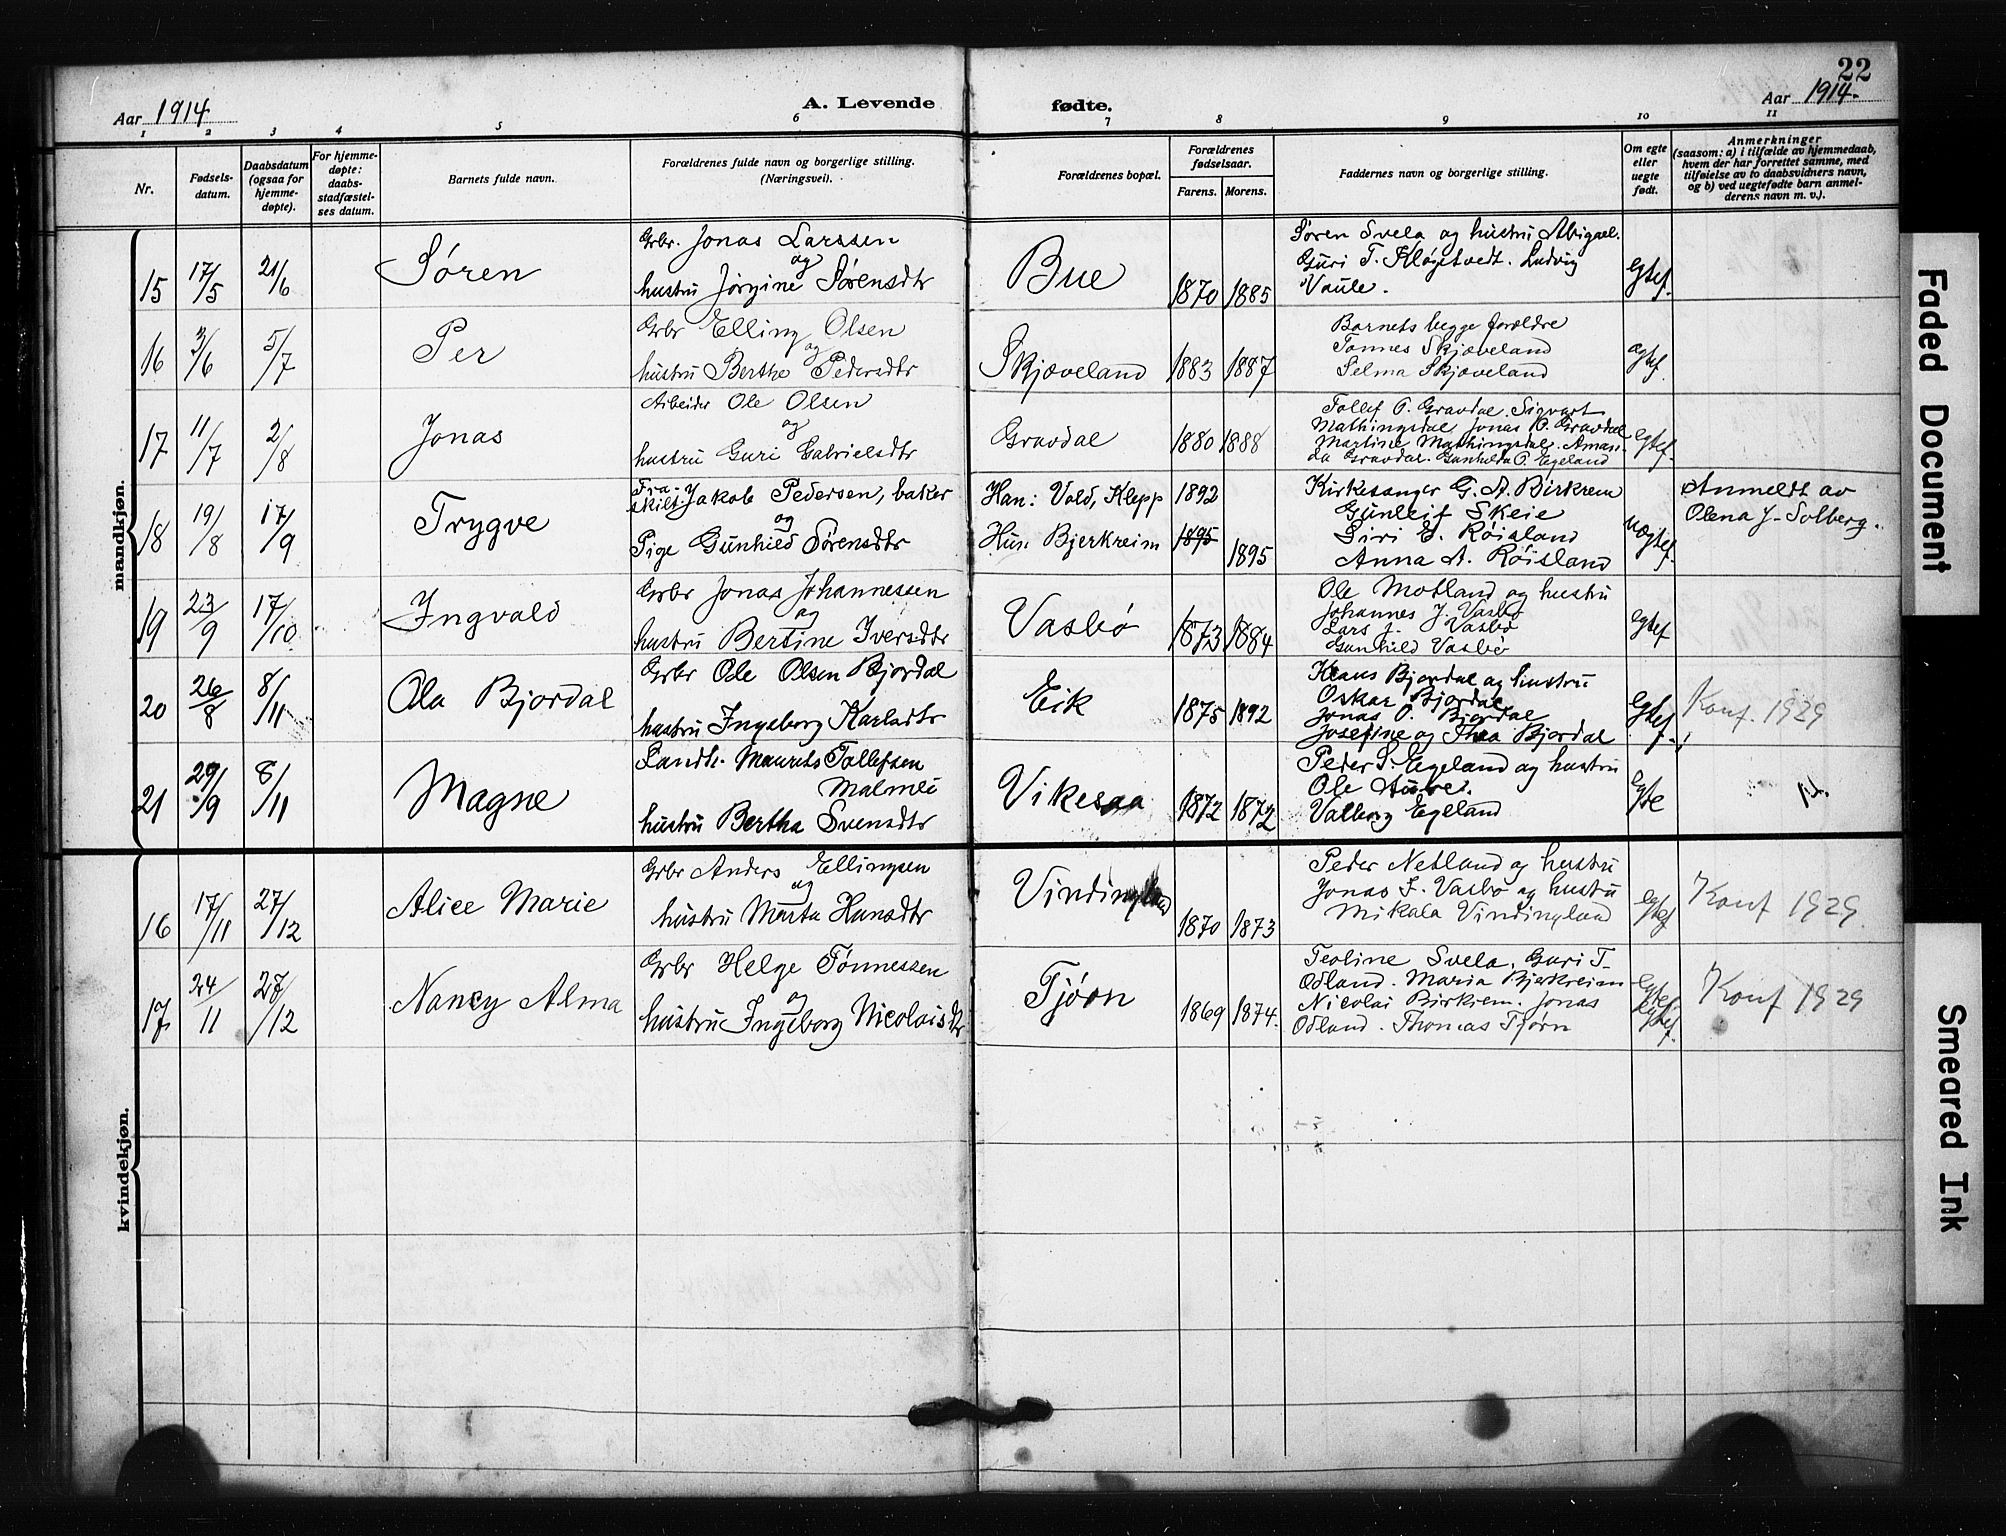 22
Aar 1914
A. Levende fødte.
Aar 1914.
1 2 3 4 5 6 7 8 9 10 11
Nr.
Fødsels-
datum.
Daabsdatum
(ogsaa for
hjemme-
døpte).
For hjemme-
døpte:
daabs-
stadfæstel-
ses datum.
Barnets fulde navn.
Forældrenes fulde navn og borgerlige stilling.
(Næringsvei).
Forældrenes bopæl.
Forældrenes
fødselsaar.
Farens. Morens.
Faddernes navn og borgerlige stilling.
Om egte
eller
uegte
født.
Anmerkninger
(saasom: a) i tilfælde av hjemmedaab,
hvem der har forrettet samme, med
tilføielse av to daabsvidners navn,
og b) ved uegtefødte barn anmel-
derens navn m. v.).
mandkjøn.
15 17/5 21/6 Søren
Grbr. Jonas Larssen
og
hustru Jørgine Sørensdtr
Bue 1870 1885
Søren Svela og hustru Abigael.
Guri T. Kløgetvedt. Ludvig
Vaule.
Egtef.
16 3/6 5/7 Per
Grbr Elling Olsen
og
hustru Berthe Pedersdtr
Skjæveland 1883 1887
Barnets begge forældre
Tønnes Skjæveland
Selma Skjæveland
egtef.
17 11/7 2/8 Jonas
Arbeider Ole Olsen
og
hustru Guri Gabrielsdtr
Gravdal 1880 1888
Tollef O. Gravdal. Sigvart
Mathingsdal Jonas O. Gravdal
Martine Mathingsdal. Aman-
da Gravdal. Gunhilda O. Egeland
Egtef.
18 19/8 17/9 Trygve
Fra-
skilt. Jakob Pedersen, baker
og
Pige Gunhild Sørensdtr
Han: Vold, Klepp 1892
Hun. Bjerkreim 1895 1895
Kirkesanger G. A. Birkrem
Gunleif Skeie
Siri G. Røisland
Anna A. Røisland
Uægtef.
Anmeldt av
Olena J. Solberg.
19 23/9 17/10 Ingvald
Grbr Jonas Johannessen
og
hustru Bertine Iversdtr
Vasbø 1873 1884
Ole Motland og hustru
Johannes J. Vasbø
Lars J. Vasbø
Gunhild Vasbø
Egtef
20 26/8 8/11 Ola Bjordal
Grbr Ole Olsen Bjordal
hustru Ingeborg Karlsdtr
Eik 1875 1892
Klaus Bjordal og hustru
Oskar Bjordal
Jonas O. Bjordal
Josefine og Thea Bjordal
Egtef.
Konf. 1929
21 29/9 8/11 Magne
Landh. Maurits Tollefsen
Malmei
hustru Bertha Svensdtr
Vikesaa 1872 1872
Peder S. Egeland og hustru
Ole
Valborg Egeland
Egte
kvindekjøn.
16 17/11 27/12 Alice Marie
Grbr Anders Ellingsen
og
hustru Marta Hansdtr
Vindingland 1870 1873
Peder Netland og hustru
Jonas J. Vasbø og hustru
Mikala Vindingland
Egtef
Konf 1929
17 24/11 27/12 Nancy Alma
Grbr Helge Tønnessen
og
hustru Ingeborg Nicolaisdtr
Tjørn 1869 1874.
Teoline Svela. Guri T.
Odland. Maria Bjerkreim
Nicolai Birkrem. Jonas
Odland. Thomas Tjørn
Egtef.
Egtef.
Konf 1929
Faded Document
Smeared Ink